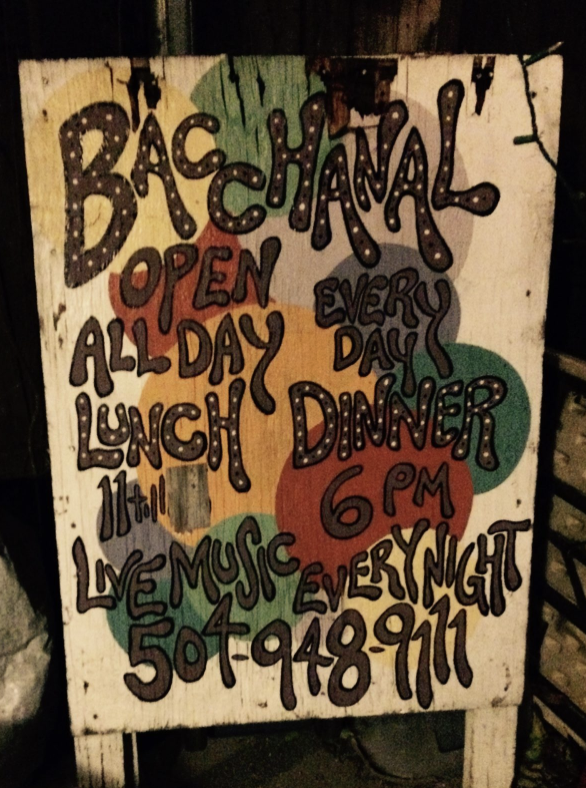 BACCHANAL
OPEN
ALL DAY EVERY DAY
LUNCH DINNER
11 till 6 PM
LIVE MUSIC EVERY NIGHT
504-948-9111